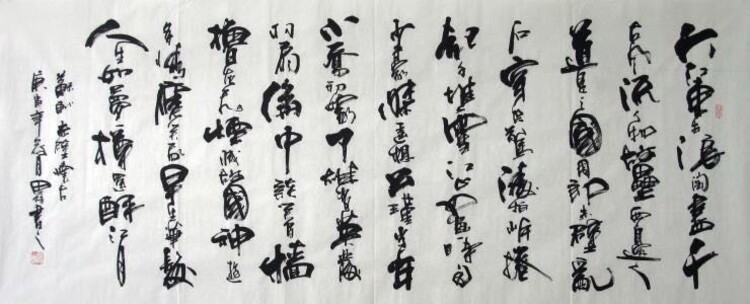 大江東去浪淘盡千
古風流人物故壘西邊人
道是三國周郎赤壁亂
石穿空驚濤拍岸捲
起千堆雪江山如畫一時多
少豪傑遙想公瑾當年
小喬初嫁了雄姿英發
羽扇綸巾談笑間檣
櫓灰飛煙滅故國神遊
多情應笑我早生華髮
人生如夢一樽還酹江月
蘇軾赤壁懷古
庚寅年月書